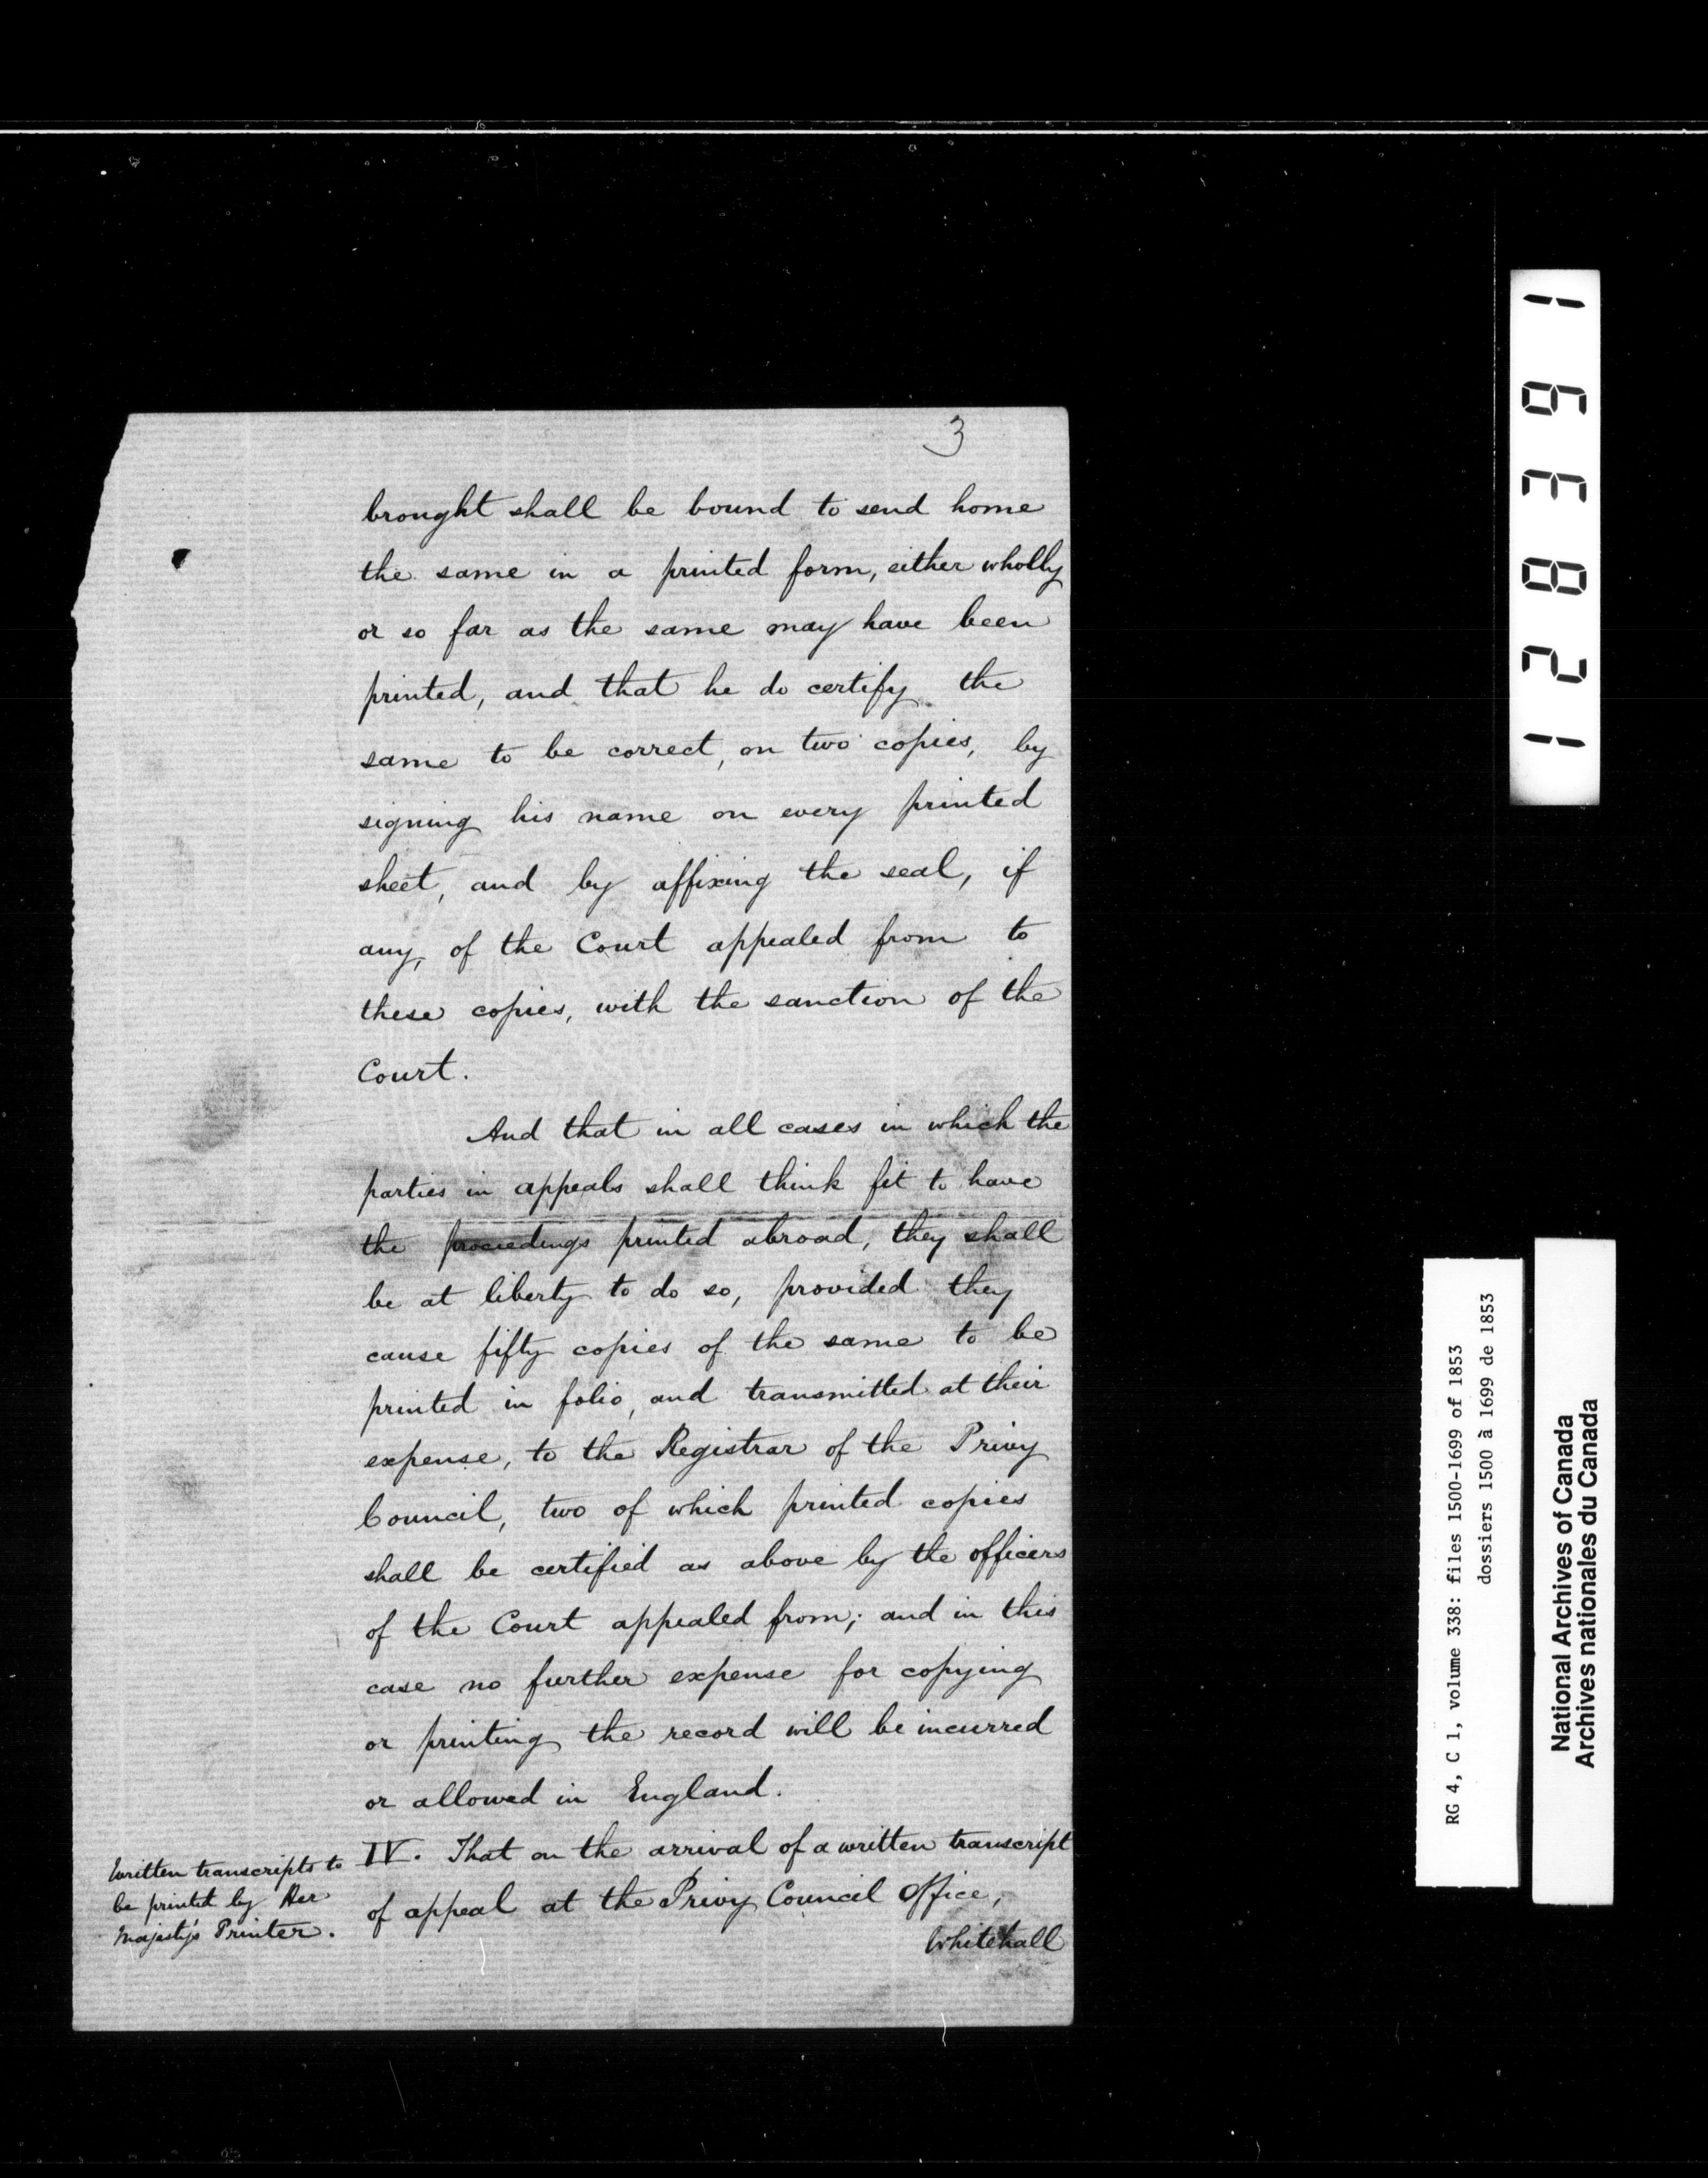 3
brought shall be bound to send home
the same in a printed form, either wholly
or so far as the same may have been
printed, and that he do certify the
same to be correct, on two copies, by
signing his name on every printed
sheet, and by affixing the seal, if
any, of the Court appealed from to
these copies, with the sanction of the
Court.
And that in all cases in which the
parties in appeals shall think fit to have
the proceedings printed abroad, they shall
be at liberty to do so, provided they
cause fifty copies of the same to be
printed in folio, and transmitted at their
expense, to the Registrar of the Privy
Council, two of which printed copies
shall be certified as above by the officers
of the Court appealed from; and in this
case no further expense for copying
or printing the record will be incurred
or allowed in England.
Written transcripts to
be printed by Her
Majesty's Printer.
IV. That on the arrival of a written transcript
of appeal at the Privy Council Office,
Whitehall
128391
RG 4, C 1, volume 338: files 1500-1699 of 1853
dossiers 1500 à 1699 de 1853
National Archives of Canada
Archives nationales du Canada